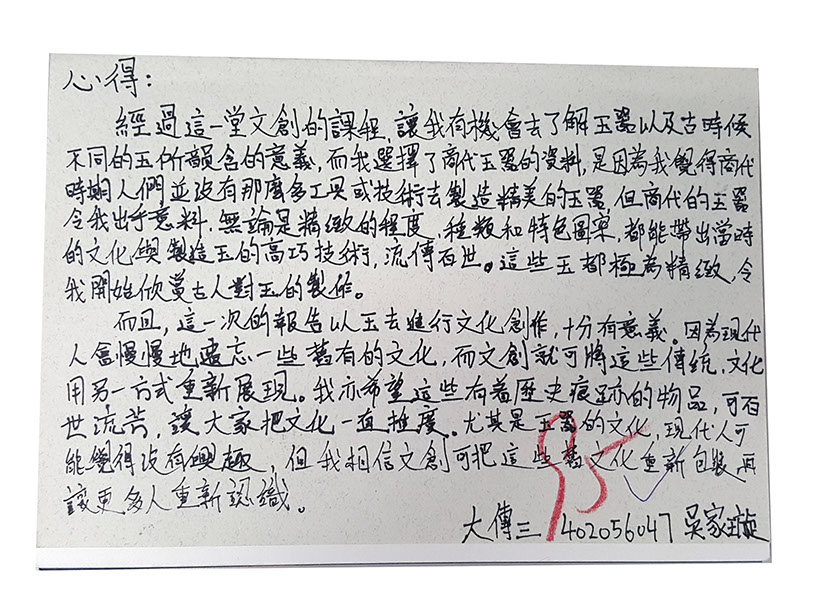 心得：
經過這一堂文創的課程，讓我有機會去了解玉器以及古時候
不同的玉所韻含的意義，而我選擇了商代玉器的資料，是因為我覺得商代
時期人們並沒有那麼多工具或技術去製造精美的玉器，但商代的玉器
令我出乎意料，無論是精緻的程度，種類和特色圖案，都能帶出當時
的文化與製造玉的高巧技術，流傳百世。這些玉都極為精緻，令
我開始欣賞古人對玉的製作。
而且，這一次的報告以玉去進行文化創作，十分有意義。因為現代
人會慢慢地遺忘一些舊有的文化，而文創就可將這些傳統，文化
用另一方式重新展現。我亦希望這些有着歷史痕跡的物品，可百
世流芳，讓大家把文化一直推廣。尤其是玉器的文化，現代人可
能覺得沒有興趣，但我相信文創可把這些舊文化重新包裝，再
讓更多人重新認識。
大傳三 402056047 吳家璇
95